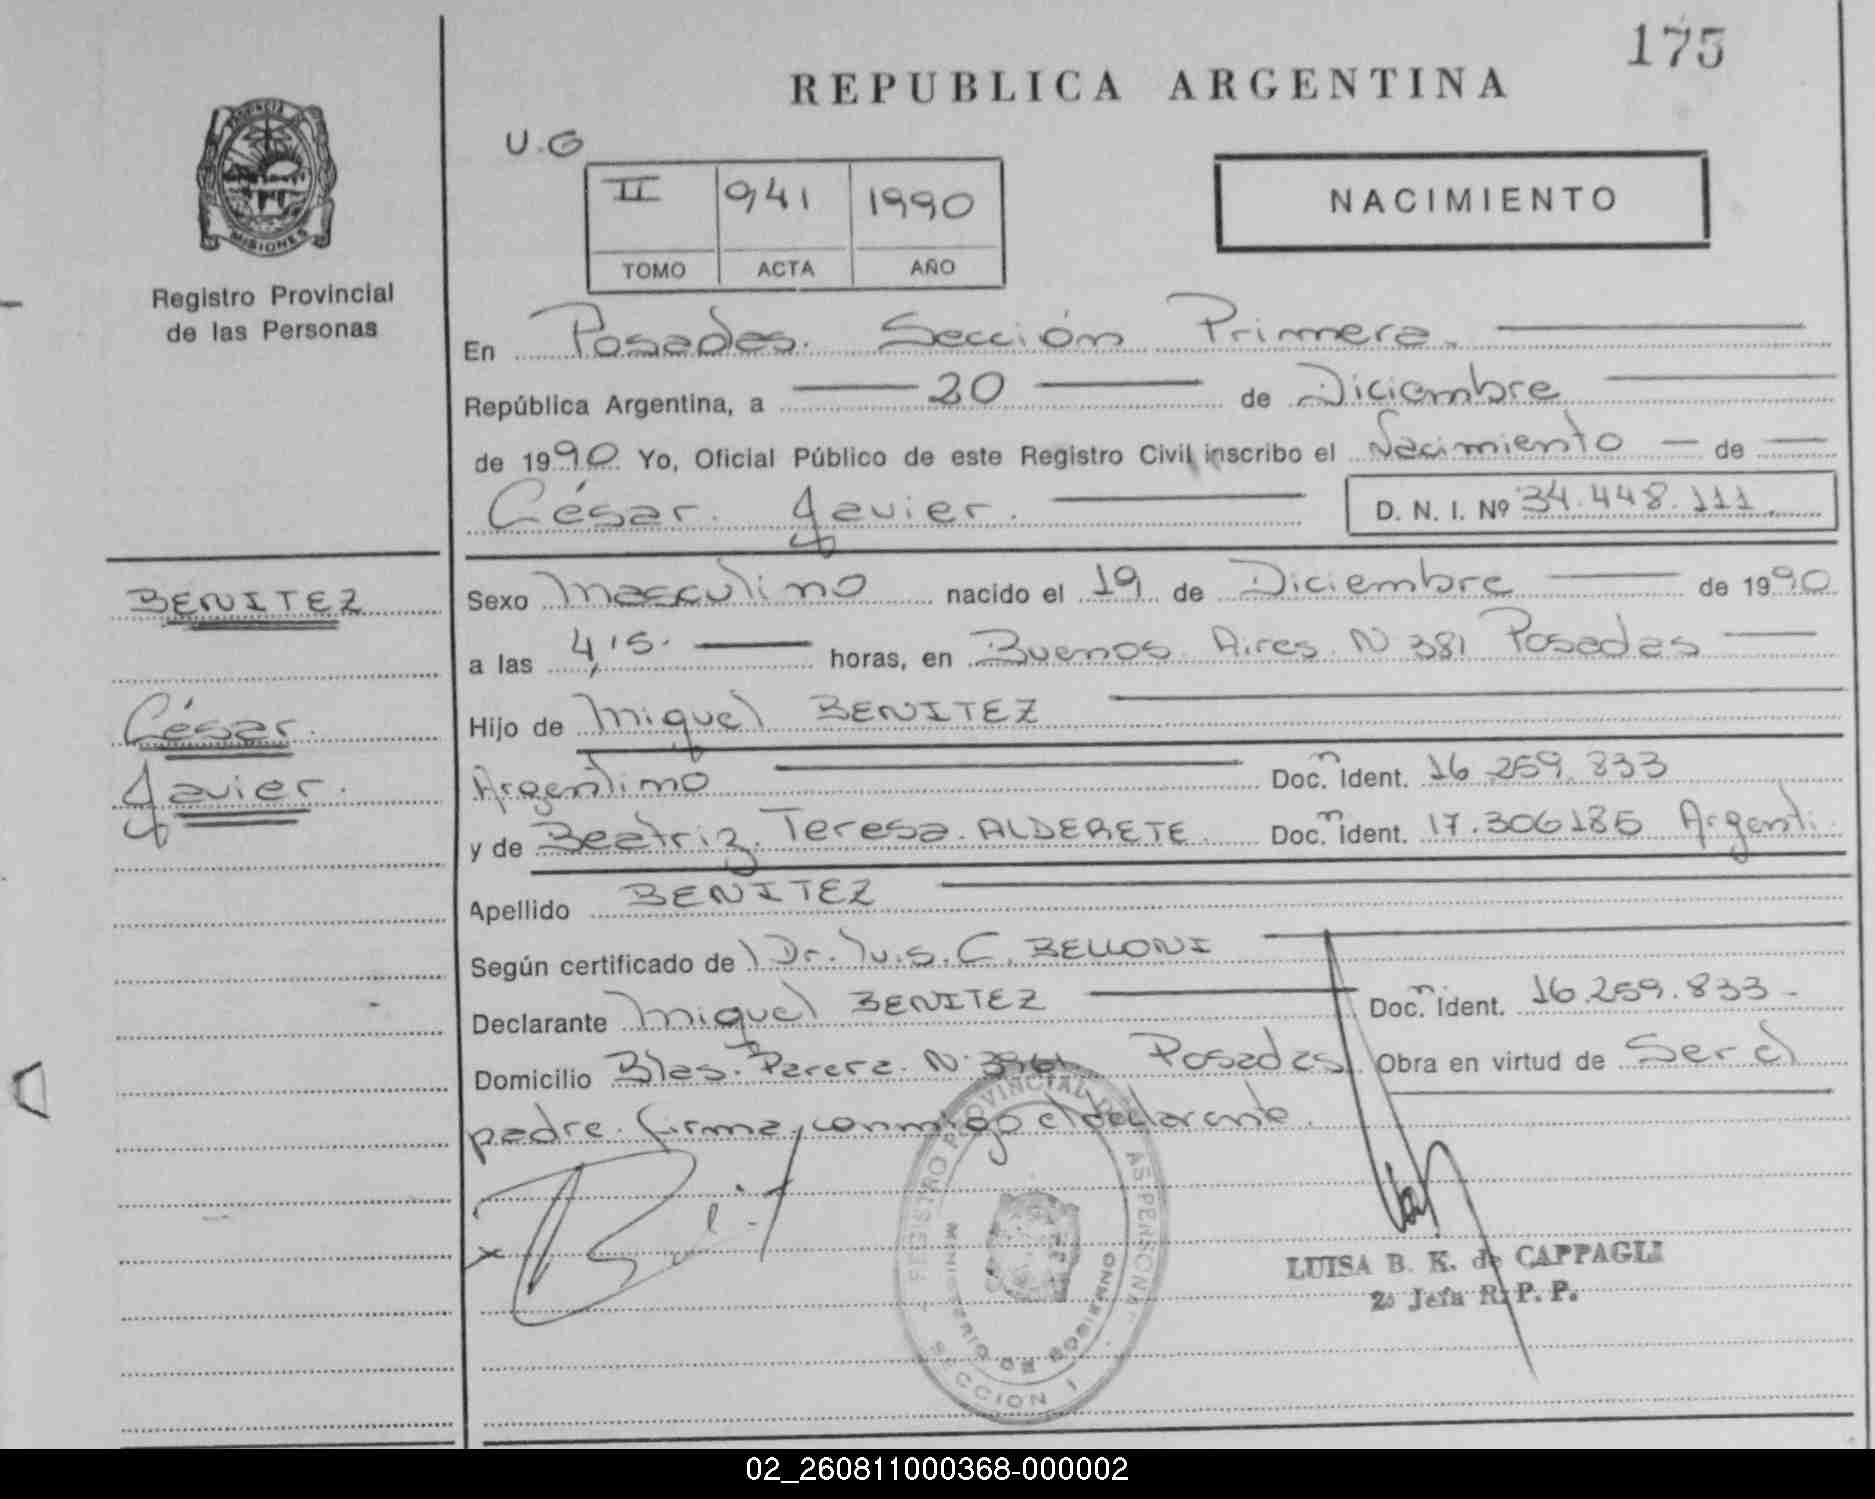 175
REPUBLICA ARGENTINA
U.G
II 941 1990
TOMO ACTA AÑO
NACIMIENTO
PROVINCIA DE
MISIONES
Registro Provincial
de las Personas
En Posadas. Sección Primera.
República Argentina, a 20 de Diciembre
de 1990 Yo, Oficial Público de este Registro Civil inscribo el Nacimiento de
César. Javier. D. N. I. Nº 34.448.111.
BENITEZ
César.
Javier.
Sexo Masculino nacido el 19 de Diciembre de 1990
a las 4,15. horas, en Buenos Aires N 381 Posadas
Hijo de Miguel BENITEZ
Argentino Doc. Ident. 16.259.833
y de Beatriz. Teresa. ALDERETE. Doc. Ident. 17.306185 Argenti.
Apellido BENITEZ
Según certificado de Dr. Luis. C. BELLONI
Declarante Miguel BENITEZ Doc. Ident. 16.259.833-
Domicilio Blas. Parera. N. Posadas. Obra en virtud de Ser el
padre. firma, conmigo el declarante.
REGISTRO PROVINCIAL DE LAS PERSONAS
MINISTERIO DE GOBIERNO
SECCION 1
LUISA B. K. de CAPPAGLI
2ª Jefa R. P. P.
02_260811000368-000002